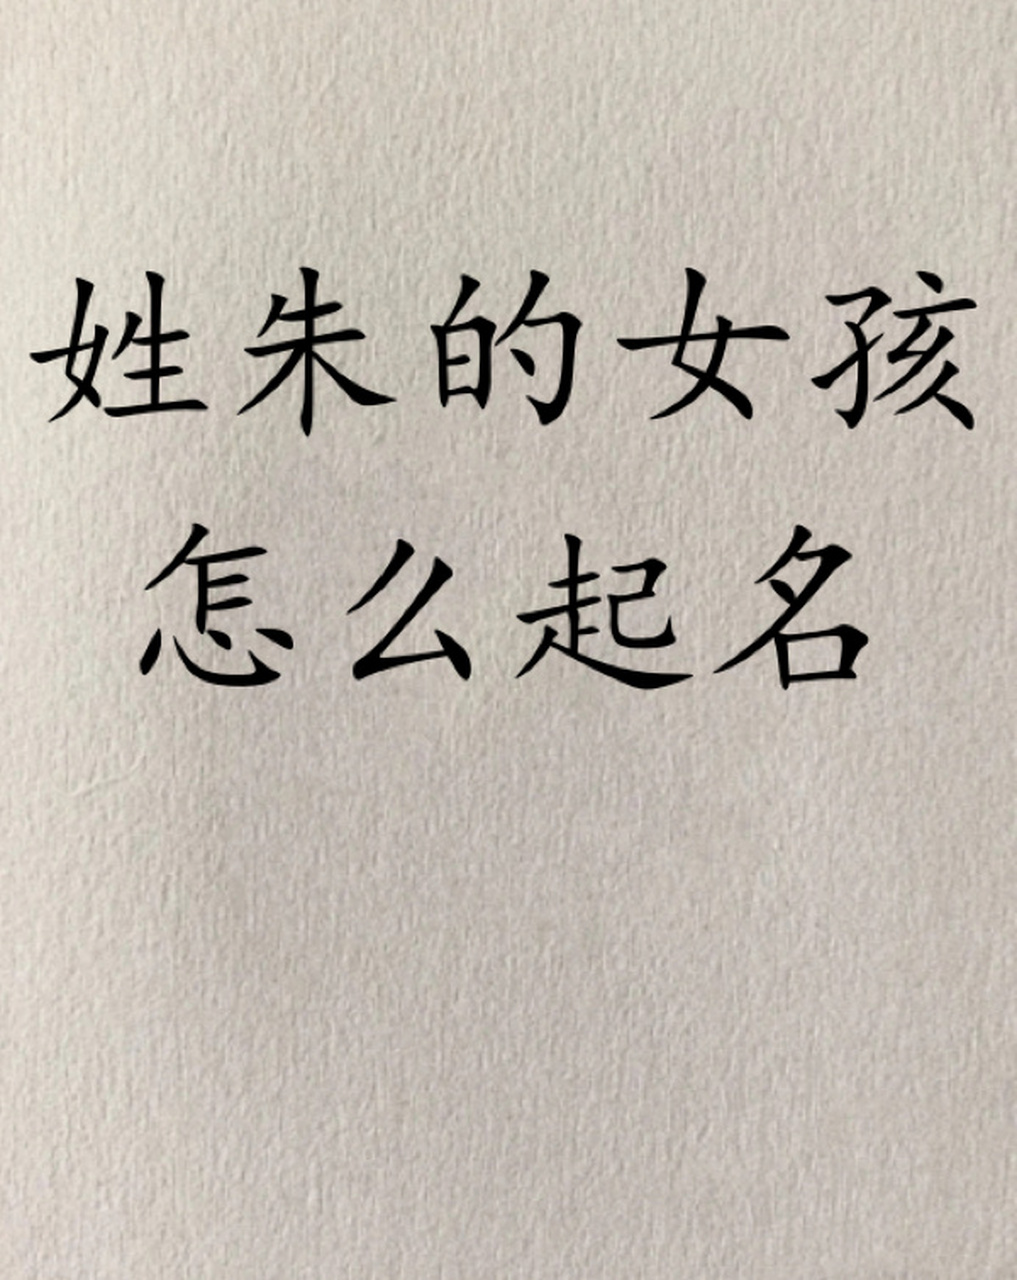 姓朱的女孩
怎么起名